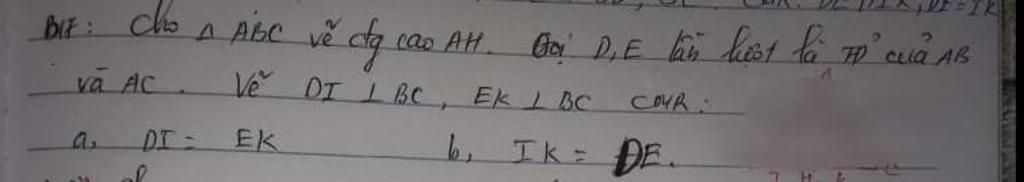 CMR: DE // IK, DI = IK
BIF: Cho △ ABC vẽ đg cao AH. Gọi D, E lần lượt là TĐ của AB
và AC. Vẽ DI ⊥ BC, EK ⊥ BC CMR:
a, DI = EK b, IK = DE.
A
I H K C